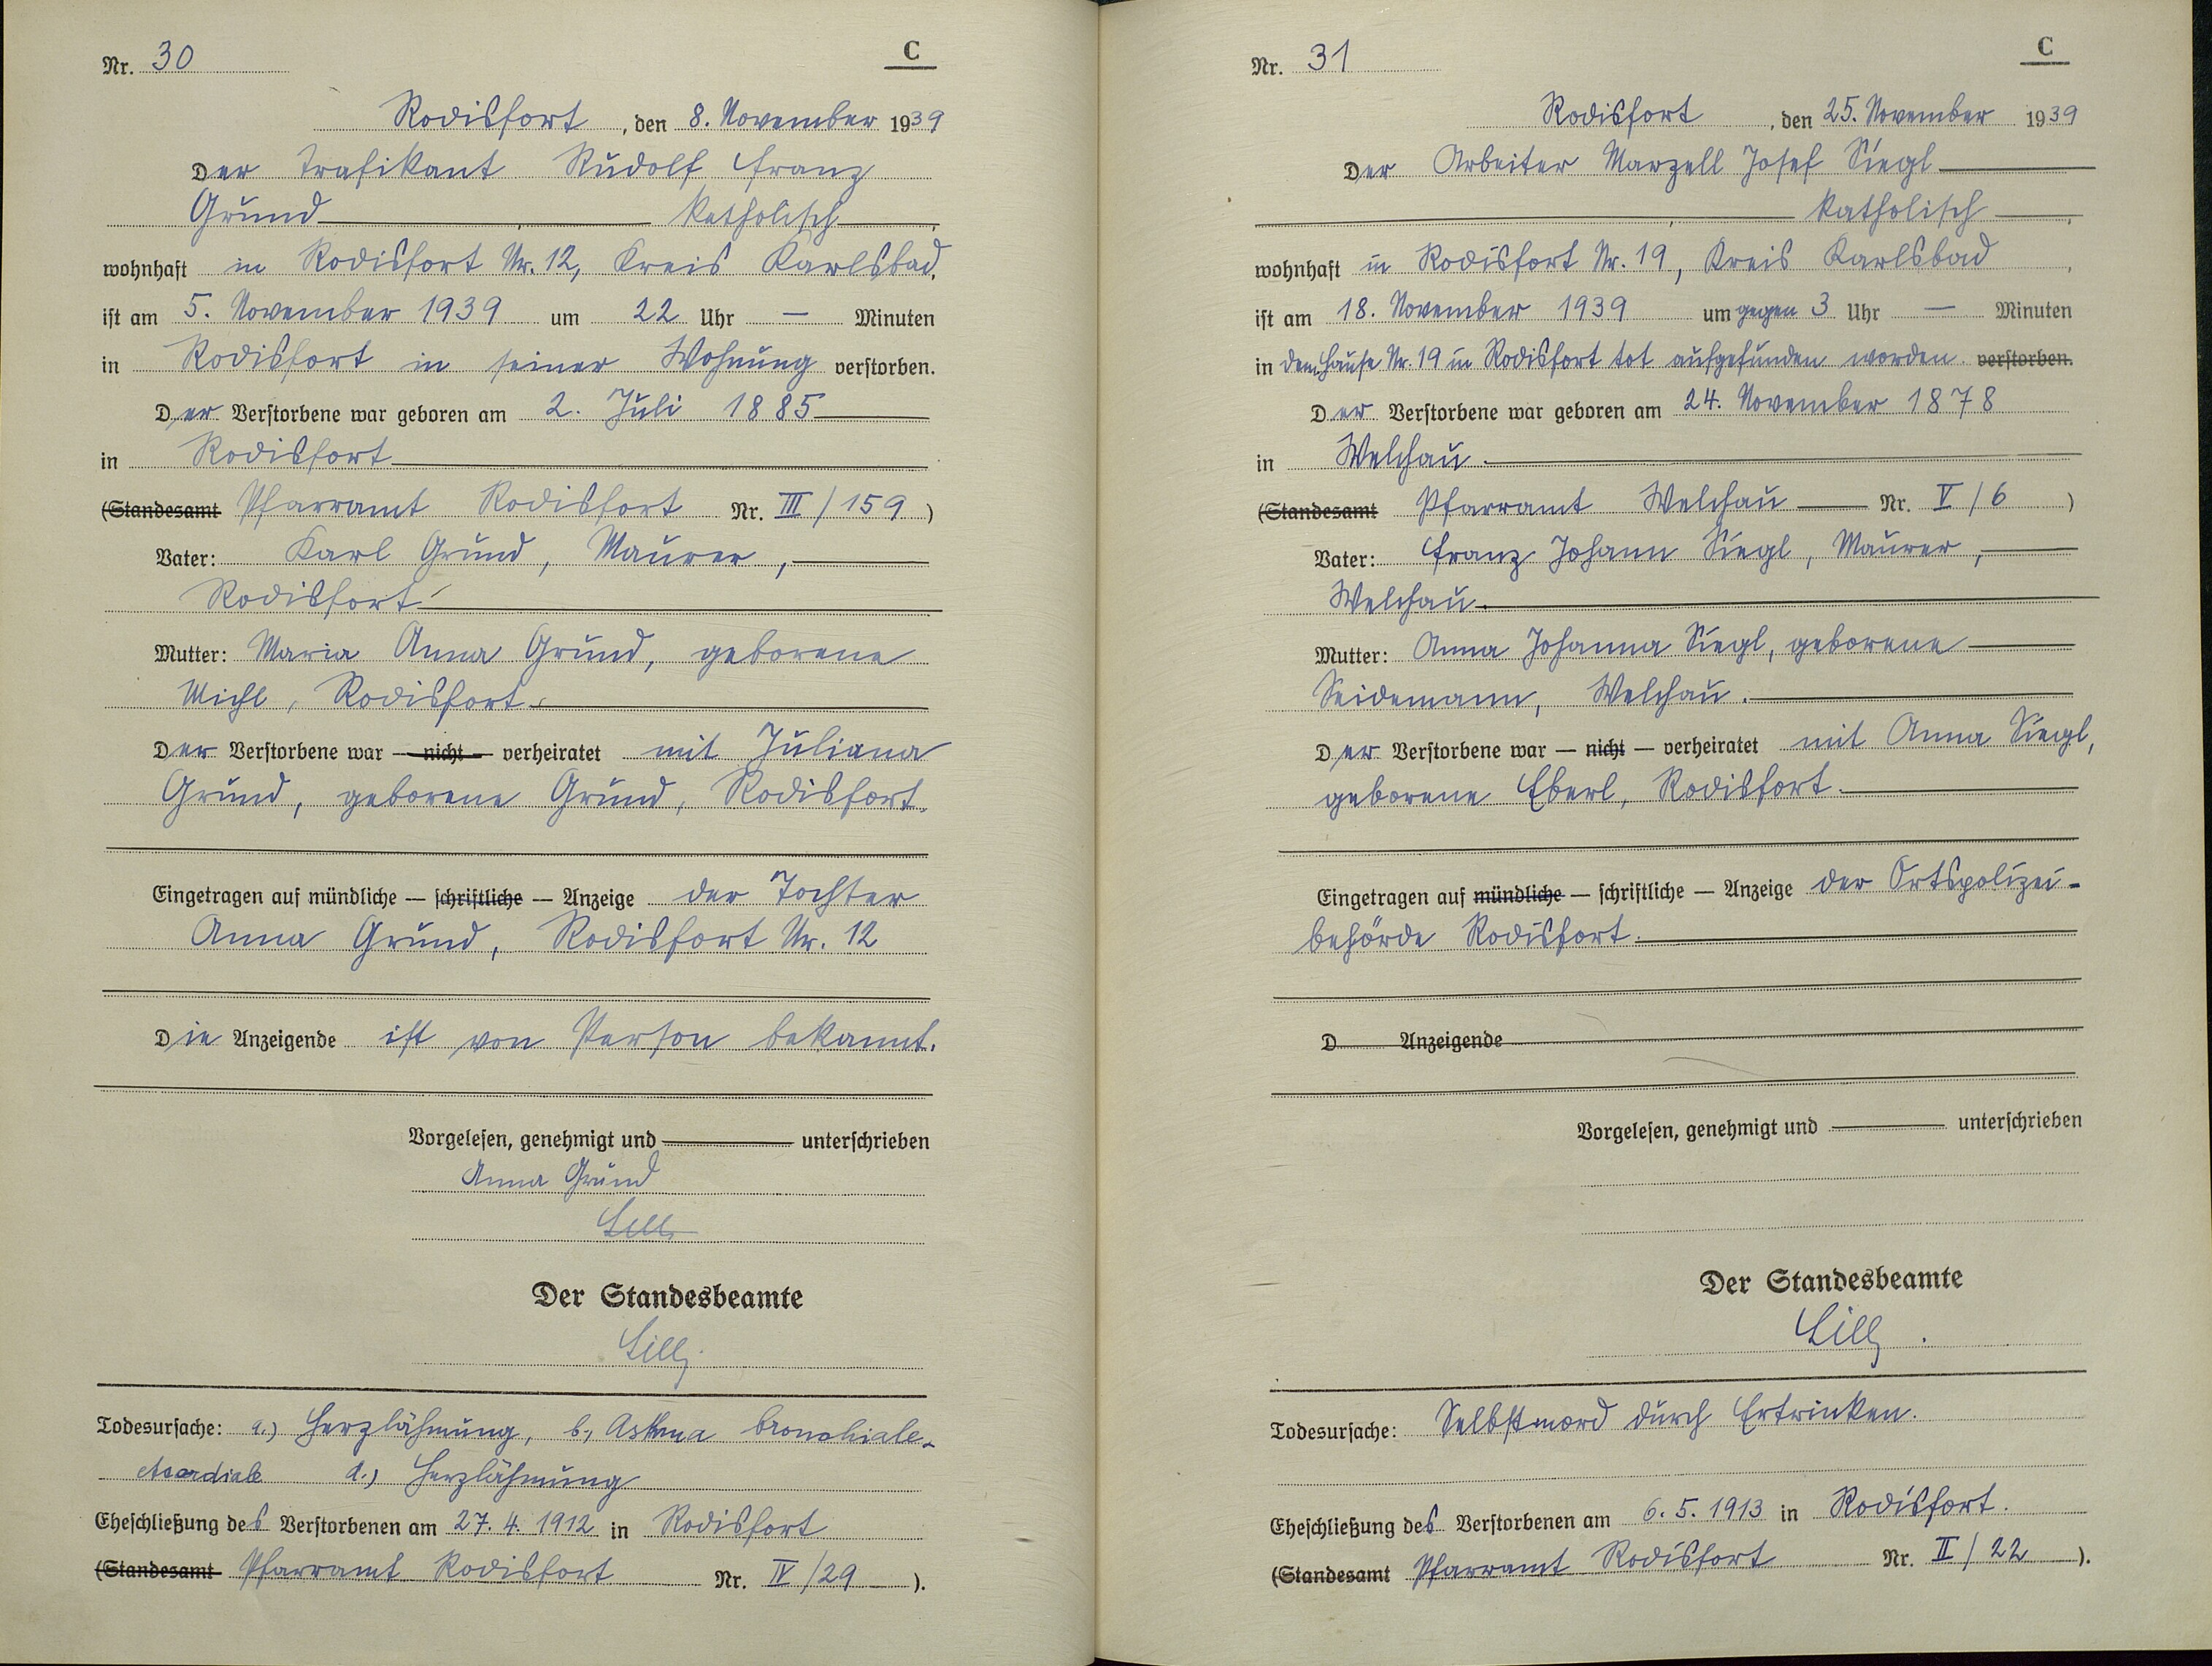 Nr. 30
C
Rodisfort, den 8. November 1939
Der Trafikant Rudolf Franz
Grund katholisch
wohnhaft in Rodisfort Nr. 12, Kreis Karlsbad,
ist am 5. November 1939 um 22 Uhr — Minuten
in Rodisfort in seiner Wohnung verstorben.
Der Verstorbene war geboren am 2. Juli 1885
in Rodisfort
(Standesamt Pfarramt Rodisfort Nr. III/159)
Vater: Karl Grund, Maurer,
Rodisfort
Mutter: Maria Anna Grund, geborene
Michl, Rodisfort.
Der Verstorbene war — nicht — verheiratet mit Juliana
Grund, geborene Grund, Rodisfort.
Eingetragen auf mündliche — schriftliche — Anzeige der Tochter
Anna Grund, Rodisfort Nr. 12
Die Anzeigende ist von Person bekannt.
Vorgelesen, genehmigt und unterschrieben
Anna Grund
Der Standesbeamte
Lill
Todesursache: a.) Herzlähmung, b., Asthma bronchiale-
d.) Herzlähmung
Eheschließung des Verstorbenen am 27. 4. 1912 in Rodisfort
(Standesamt Pfarramt Rodisfort Nr. IV/29).
Nr. 31
C
Rodisfort, den 25. November 1939
Der Arbeiter Marzell Josef Siegl
, katholisch,
wohnhaft in Rodisfort Nr. 19, Kreis Karlsbad,
ist am 18. November 1939 um gegen 3 Uhr — Minuten
in dem Hause Nr. 19 in Rodisfort tot aufgefunden worden. verstorben.
Der Verstorbene war geboren am 24. November 1878
in Welchau.
(Standesamt Pfarramt Welchau Nr. V/6)
Vater: Franz Johann Siegl, Maurer,
Welchau.
Mutter: Anna Johanna Siegl, geborene
Seidemann, Welchau.
Der Verstorbene war — nicht — verheiratet mit Anna Siegl,
geborene Eberl, Rodisfort.
Eingetragen auf mündliche — schriftliche — Anzeige der Ortspolizei-
behörde Rodisfort.
D Anzeigende
Vorgelesen, genehmigt und unterschrieben
Der Standesbeamte
Lill.
Todesursache: Selbstmord durch Ertrinken.
Eheschließung des Verstorbenen am 6. 5. 1913 in Rodisfort.
(Standesamt Pfarramt Rodisfort Nr. II/22).